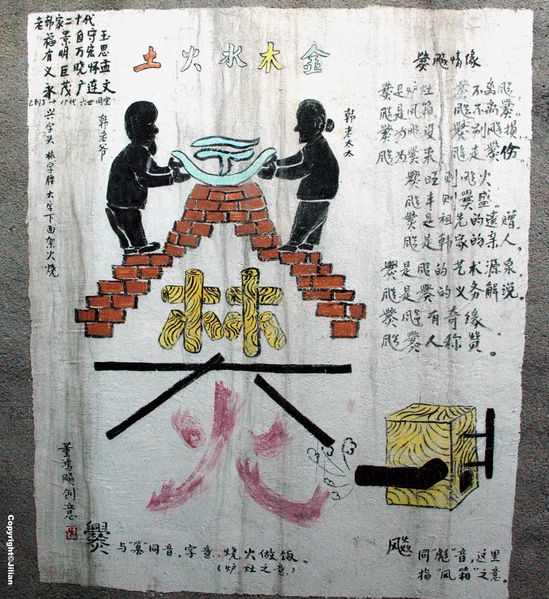 老韩家二十代
福景自守玉
有明万宏思
义巨晓怀孟
永茂广连文
17代 六世同堂
土火水木金
爨飚情缘
爨是炉灶 爨不离飚。
飚是风箱 飚不离爨。
爨为飚设 爨不别飚
飚为爨来 飚是爨份
爨旺则飚火
飚丰则爨盛。
爨是祖先的遗赠
飚是韩家的亲人。
爨是飚的艺术源泉
飚是爨的义务解说。
爨飚有奇缘
飚爨人称赞。
兴字头 林字腰 大字下面架火烧
韩老爷
韩老太太
林
大
火
董鸿飚创意
爨
与"篡"同音,字意:烧火做饭。
(炉灶之意)
飚
同"彪"音,这里
指"风箱"之意.
Copyright©Jilian